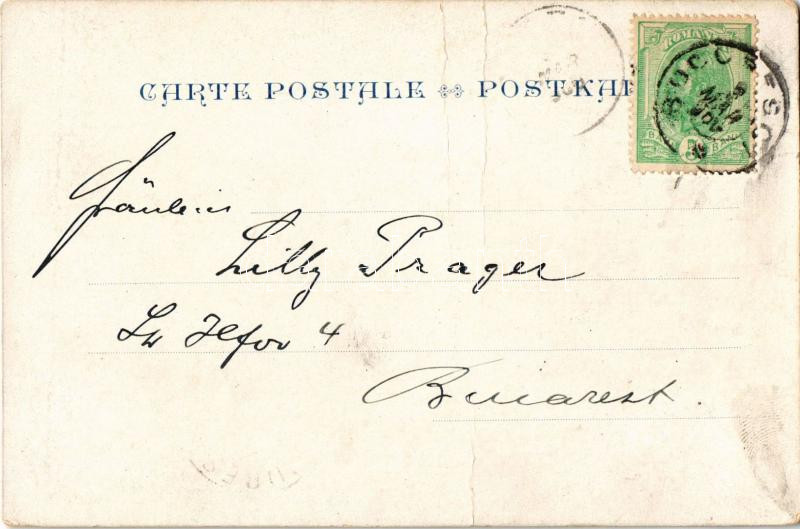 ROMANIA
CARTE POSTALE POSTKAR
BUCURESCI
MAR
5 BANI
Fräulein
Lilly Prager
Ilfov 4
Bucarest.